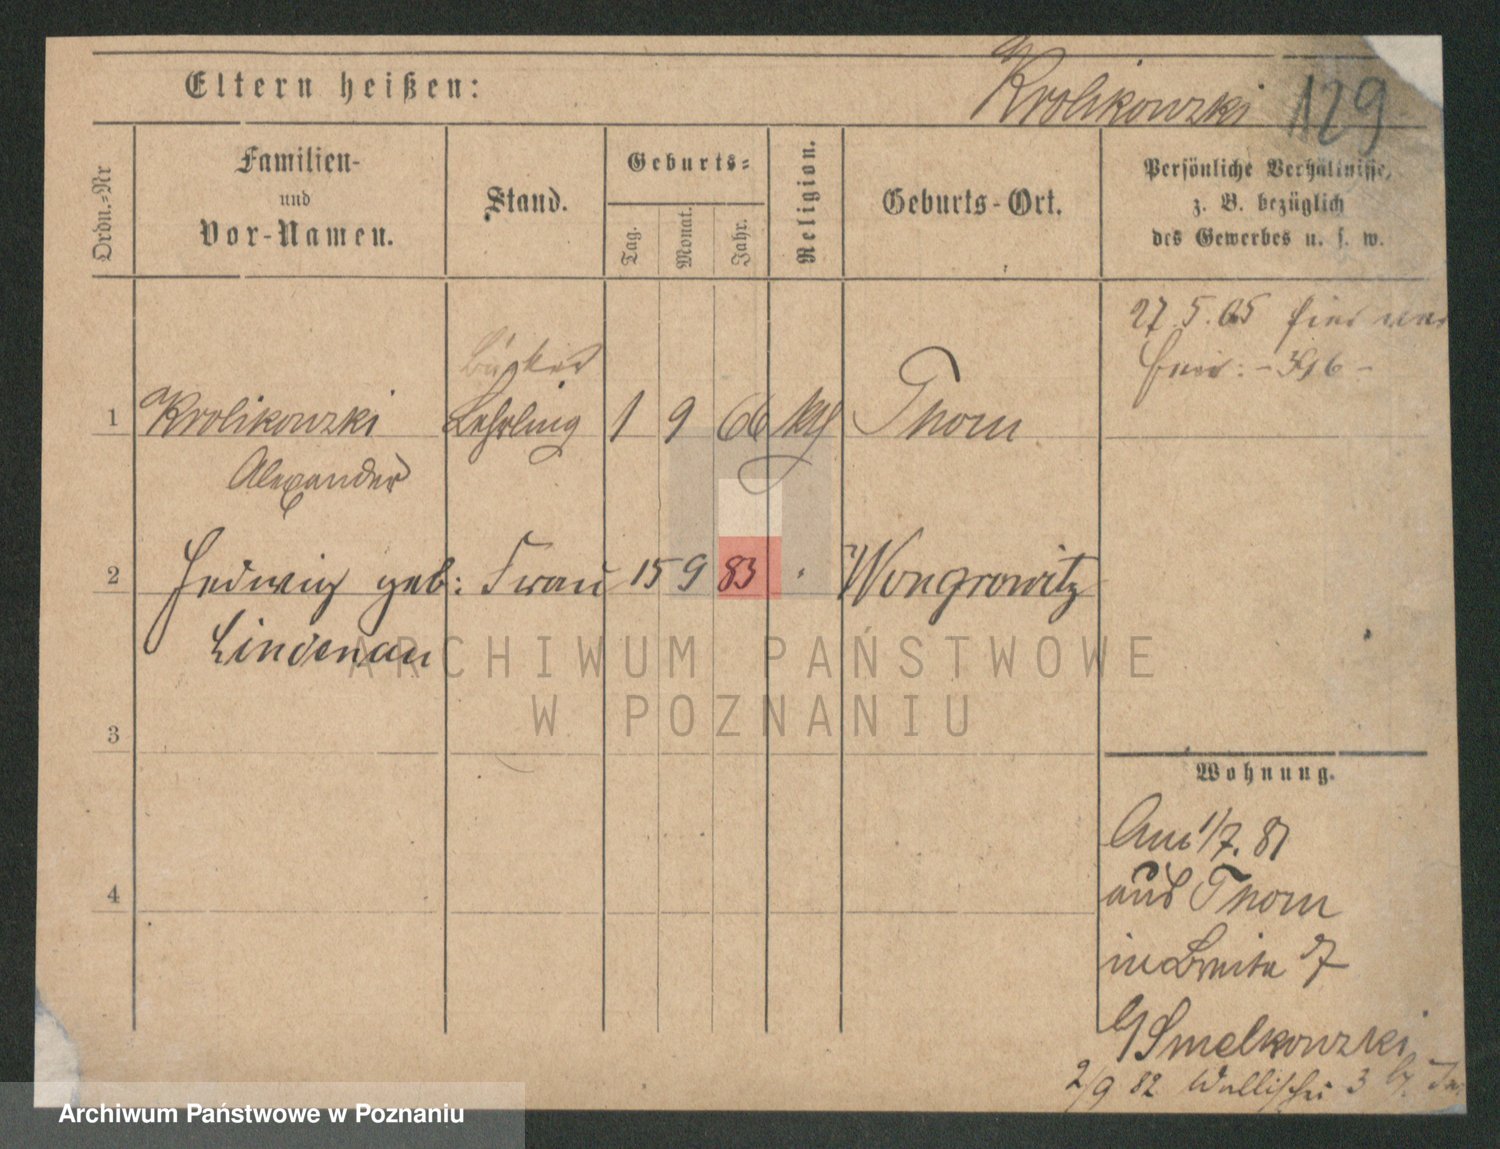 Eltern heißen:
Krolikowski 129
Ordn.-Nr
Familien-
und
Vor-Namen.
Stand.
Geburts-
Tag.
Monat.
Jahr.
Religion.
Geburts-Ort.
Persönliche Verhältnisse,
z. B. bezüglich
des Gewerbes u. s. w.
27.5.65
396
1 Krolikowski Lehrling 1 9 66 kth Thorn
Alexander
2 Hedwig geb: Frau 15 9 83 Wongrowitz
Lindenau
3
4
Wohnung.
Am 1/7. 81
aus Thorn
in Breite 7
b/ Smelkowski
2/9 82 Wallischei 3
ARCHIWUM PAŃSTWOWE
W POZNANIU
Archiwum Państwowe w Poznaniu